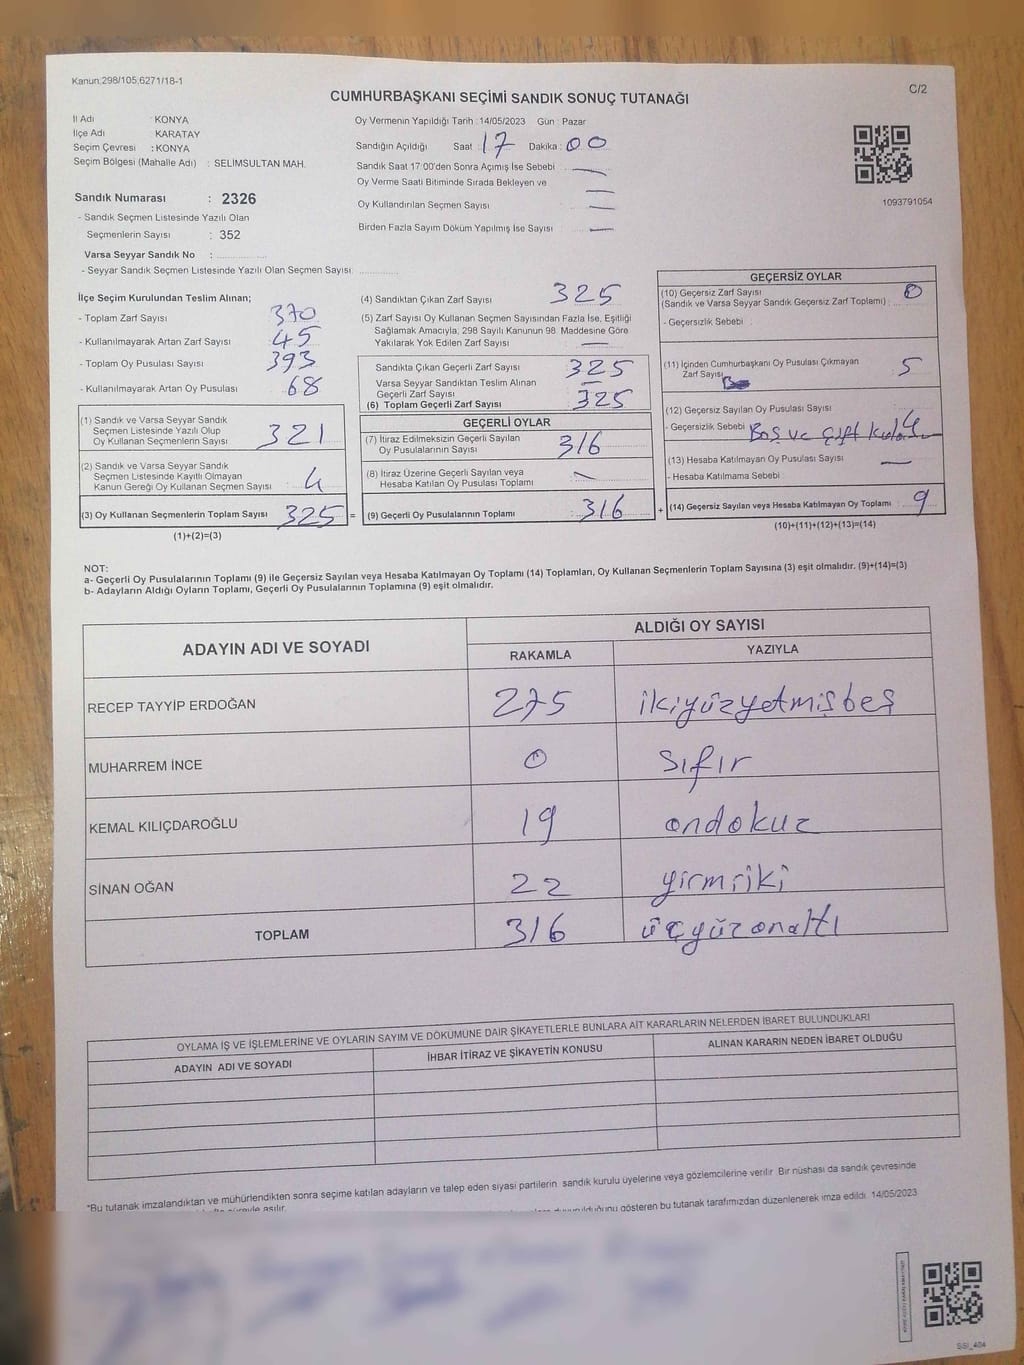 Kanun:298/105;6271/18-1
C/2
CUMHURBAŞKANI SEÇİMİ SANDIK SONUÇ TUTANAĞI
İl Adı : KONYA
İlçe Adı KARATAY
Seçim Çevresi : KONYA
Seçim Bölgesi (Mahalle Adı) : SELİMSULTAN MAH.
Sandık Numarası : 2326
- Sandık Seçmen Listesinde Yazılı Olan
Seçmenlerin Sayısı : 352
Varsa Seyyar Sandık No :
- Seyyar Sandık Seçmen Listesinde Yazılı Olan Seçmen Sayısı:
Oy Vermenin Yapıldığı Tarih : 14/05/2023 Gün : Pazar
Sandığın Açıldığı Saat : 17 Dakika : 00
Sandık Saat 17:00'den Sonra Açımış İse Sebebi : —
Oy Verme Saati Bitiminde Sırada Bekleyen ve
Oy Kullandırılan Seçmen Sayısı : —
Birden Fazla Sayım Döküm Yapılmış İse Sayısı : —
1093791054
İlçe Seçim Kurulundan Teslim Alınan;
- Toplam Zarf Sayısı : 370
- Kullanılmayarak Artan Zarf Sayısı : 45
- Toplam Oy Pusulası Sayısı : 393
- Kullanılmayarak Artan Oy Pusulası : 68
(1) Sandık ve Varsa Seyyar Sandık
Seçmen Listesinde Yazılı Olup
Oy Kullanan Seçmenlerin Sayısı : 321
(2) Sandık ve Varsa Seyyar Sandık
Seçmen Listesinde Kayıtlı Olmayan
Kanun Gereği Oy Kullanan Seçmen Sayısı : 4
(3) Oy Kullanan Seçmenlerin Toplam Sayısı : 325 =
(1)+(2)=(3)
(4) Sandıktan Çıkan Zarf Sayısı : 325
(5) Zarf Sayısı Oy Kullanan Seçmen Sayısından Fazla İse, Eşitliği
Sağlamak Amacıyla, 298 Sayılı Kanunun 98. Maddesine Göre
Yakılarak Yok Edilen Zarf Sayısı : —
Sandıkta Çıkan Geçerli Zarf Sayısı : 325
Varsa Seyyar Sandıktan Teslim Alınan
Geçerli Zarf Sayısı : —
(6) Toplam Geçerli Zarf Sayısı : 325
GEÇERLİ OYLAR
(7) İtiraz Edilmeksizin Geçerli Sayılan
Oy Pusulalarının Sayısı : 316
(8) İtiraz Üzerine Geçerli Sayılan veya
Hesaba Katılan Oy Pusulası Toplamı : —
(9) Geçerli Oy Pusulalarının Toplamı : 316 +
GEÇERSİZ OYLAR
(10) Geçersiz Zarf Sayısı
(Sandık ve Varsa Seyyar Sandık Geçersiz Zarf Toplamı) : 0
- Geçersizlik Sebebi :
(11) İçinden Cumhurbaşkanı Oy Pusulası Çıkmayan
Zarf Sayısı 5
(12) Geçersiz Sayılan Oy Pusulası Sayısı : 4
- Geçersizlik Sebebi Boş ve Çift
(13) Hesaba Katılmayan Oy Pusulası Sayısı : —
- Hesaba Katılmama Sebebi
(14) Geçersiz Sayılan veya Hesaba Katılmayan Oy Toplamı : 9
(10)+(11)+(12)+(13)=(14)
NOT:
a- Geçerli Oy Pusulalarının Toplamı (9) ile Geçersiz Sayılan veya Hesaba Katılmayan Oy Toplamı (14) Toplamları, Oy Kullanan Seçmenlerin Toplam Sayısına (3) eşit olmalıdır. (9)+(14)=(3)
b- Adayların Aldığı Oyların Toplamı, Geçerli Oy Pusulalarının Toplamına (9) eşit olmalıdır.
ADAYIN ADI VE SOYADI ALDIĞI OY SAYISI
RAKAMLA YAZIYLA
RECEP TAYYİP ERDOĞAN 275 ikiyüzyetmişbeş
MUHARREM İNCE 0 sıfır
KEMAL KILIÇDAROĞLU 19 ondokuz
SİNAN OĞAN 22 yirmiiki
TOPLAM 316 üçyüzonaltı
OYLAMA İŞ VE İŞLEMLERİNE VE OYLARIN SAYIM VE DÖKÜMÜNE DAİR ŞİKAYETLERLE BUNLARA AİT KARARLARIN NELERDEN İBARET BULUNDUKLARI
ADAYIN ADI VE SOYADI İHBAR İTİRAZ VE ŞİKAYETİN KONUSU ALINAN KARARIN NEDEN İBARET OLDUĞU
*Bu tutanak imzalandıktan ve mühürlendikten sonra seçime katılan adayların ve talep eden siyasi partilerin sandık kurulu üyelerine veya gözlemcilerine verilir. Bir nüshası da sandık çevresinde
süreyle asılır.
gösteren bu tutanak tarafımızdan düzenlenerek imza edildi. 14/05/2023
SSI_404